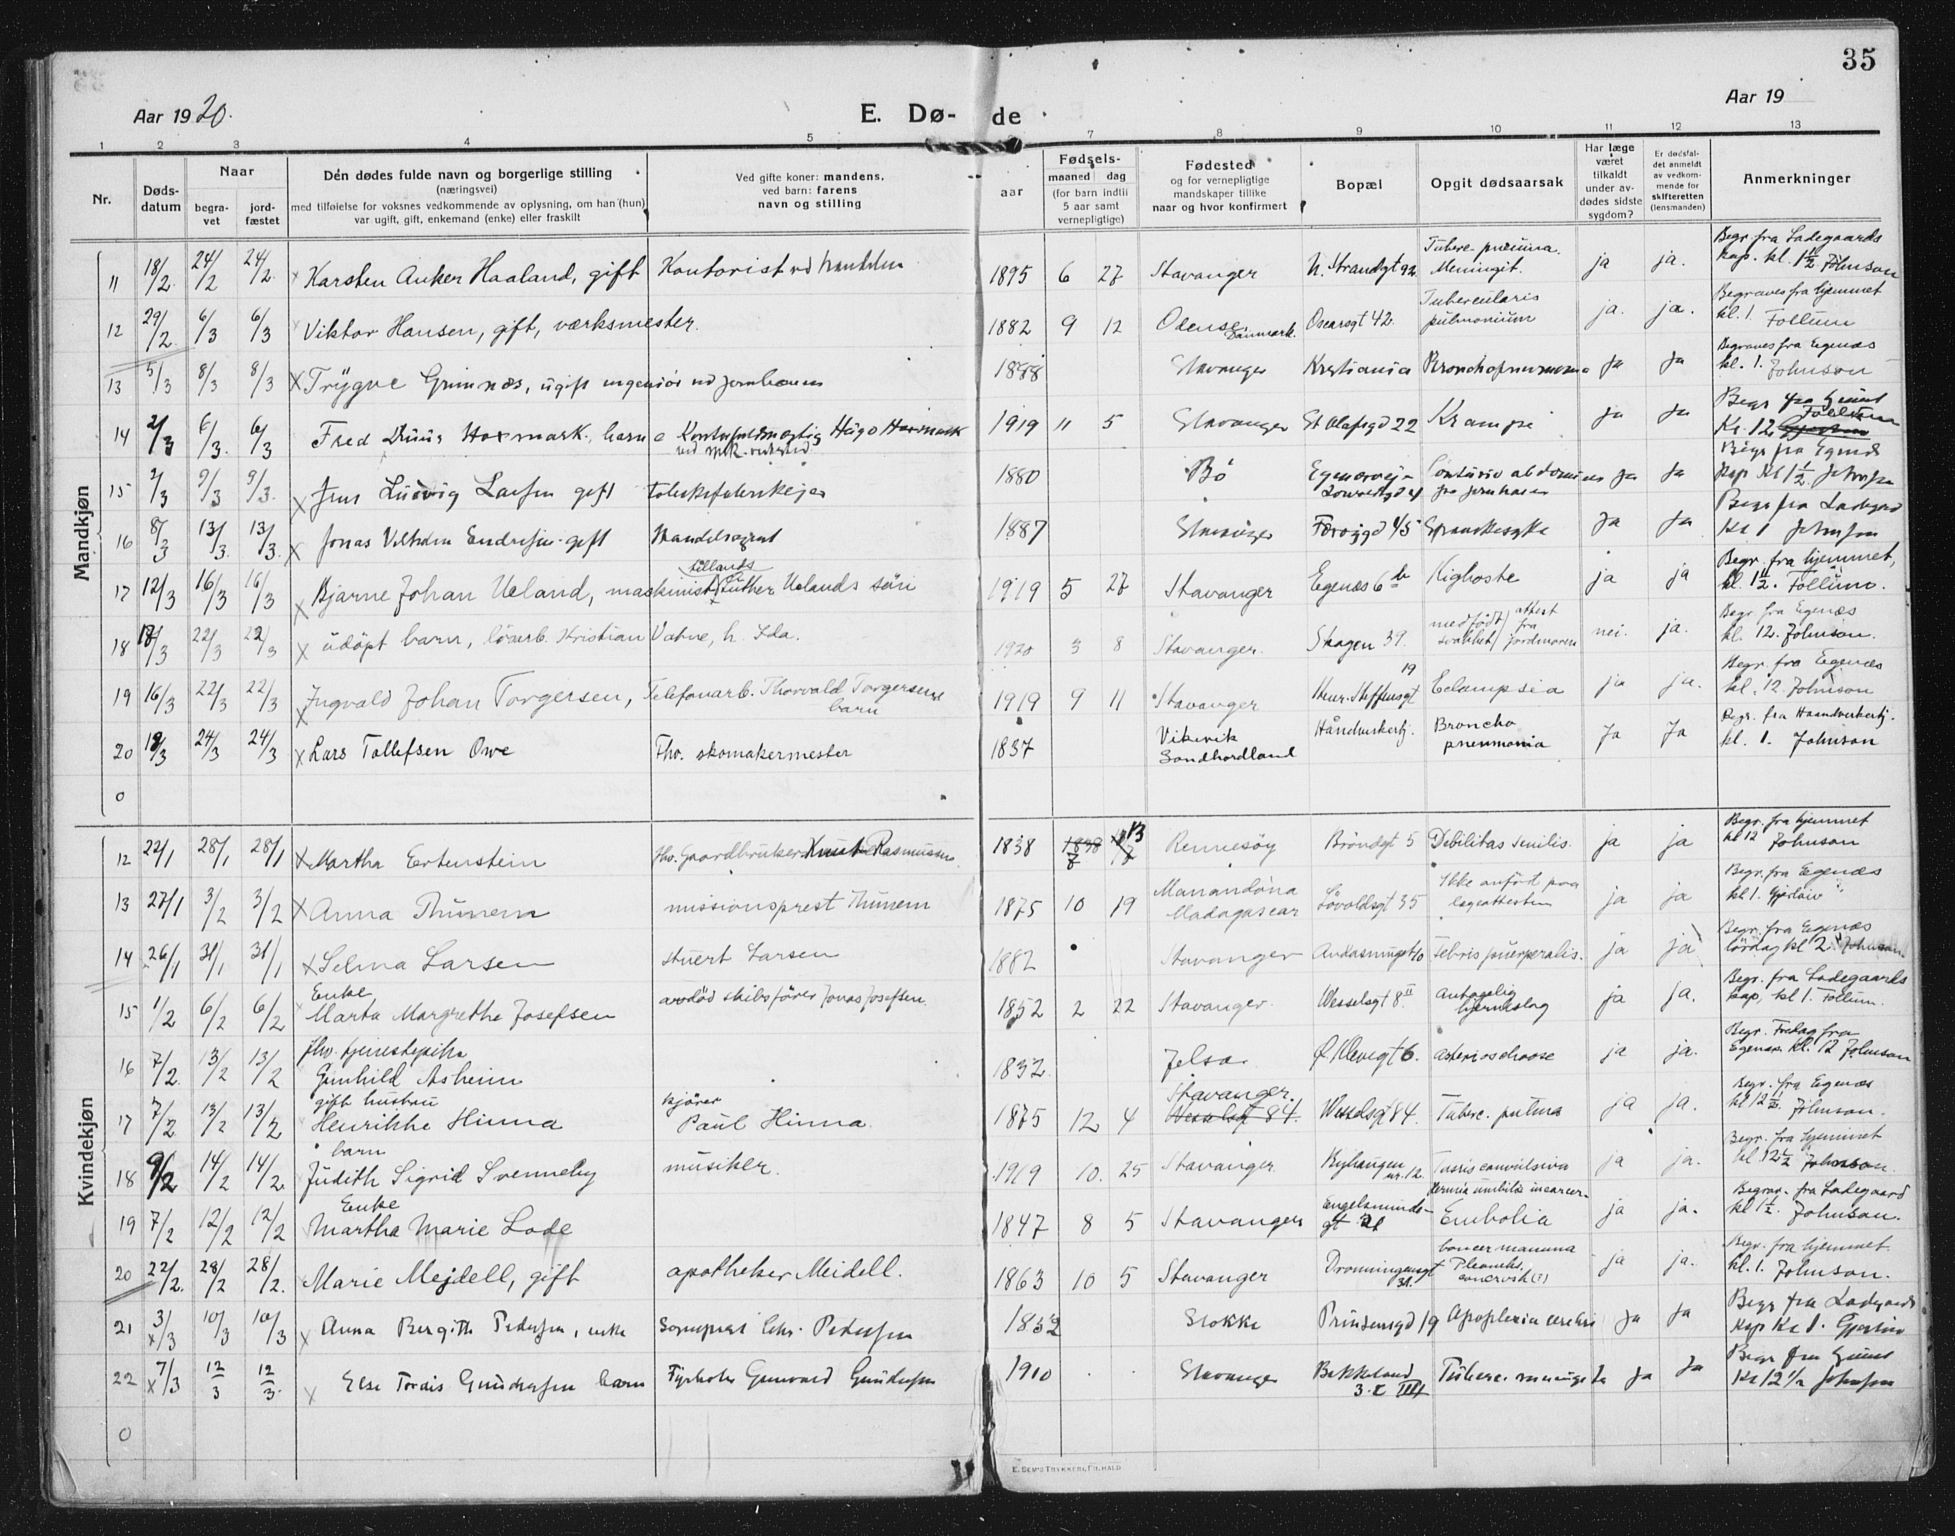 35
Aar 1920.
E. Dø-de
Aar 19
1 2 3 4 5 7 8 9 10 11 12 13
Nr.
Døds-
datum
Naar
begra-
vet
jord-
fæstet
Den dødes fulde navn og borgerlige stilling
(næringsvei)
med tilføielse for voksnes vedkommende av oplysning, om han (hun)
var ugift, gift, enkemand (enke) eller fraskilt
Ved gifte koner: mandens,
ved barn: farens
navn og stilling
aar
Fødsels-
maaned dag
(for barn indtil
5 aar samt
vernepligtige)
Fødested
og for vernepligtige
mandskaper tillike
naar og hvor konfirmert
Bopæl
Opgit dødsaarsak
Har læge
været
tilkaldt
under av-
dødes sidste
sygdom?
Er dødsfal-
det anmeldt
av vedkom-
mende for
skifteretten
(lensmanden)
Anmerkninger
Mandkjøn
11 18/2 24/2 24/2 Karsten Anker Haaland, gift Kontorist 1895 6 27 Stavanger N. Strandgt 92 Tuberc. Meningit. ja ja. Begr. fra Ladegaards kap. kl. 1 1/2 Johnson
12 29/2 6/3 6/3 Viktor Hansen, gift, værksmester. 1882 9 12 Odense Danmark. Oscarsgt 42. Tubercularis pulmonium ja. ja. Begraves fra hjemmet kl. 1 Follum
13 5/3 8/3 8/3 x Trygve Grimnæs, ugift ingeniør 1888 Stavanger Kristiania ja ja Begraves fra Egenæs kl. 1. Johnson
14 2/3 6/3. 6/3 Fred barn 1919 11 5 Stavanger St Olafsgd 22 Krampe ja ja Begr fra Kl. 12 Follum
15 2/3 9/3 9/3. x Jens Ludvig Larsen gift 1880 Bö ja ja Begr fra Egenæs kap kl 1 1/2 Johnson
16 8/3 13/3. 13/3. x Jonas Vilhelm Endresen gift Handelsagent 1887 Stavanger Færøygd 45 Spanskesyke ja ja Begr fra Ladegrd Kl 1 Johnson
17 12/3 16/3 16/3 x Bjarne Johan Ueland, maskinist Luther Uelands sön 1919 5 27 Stavanger Egenæs 6 b Kighoste ja ja Begr. fra hjemmet, kl. 12. Follum.
18 18/3 22/3 22/3 x udöpt barn, löserb. Kristian Vatne, h. Ida. 1920 3 8 Stavanger. Skagen 39. medfödt svakhet/ attest fra jordmoren nei. ja. Begr. fra Egenæs kl. 12. Johnson.
19 16/3 22/3 22/3 x Ingvald Johan Torgersen, Telefonarb. Thorvald Torgersens barn 1919 9 11 Stavanger Henr. Steffensgt 19 Eclampsia ja ja. Begr. fra Egenæs kl. 12. Johnson
20 18/3 24/3 24/3 x Lars Tollefsen Owe Fhv. skomakermester 1837 Vikevik Söndhordland Håndverkerhj. Broncho pneumonia Ja Ja Begr. fra Haandverkerhj. kl. 1. Johnson
0
Kvindekjøn
12 22/1 28/1 28/1 x Martha Ertenstein fhv. Gaardbruker Knut Rasmussen 1838 13 Rennesöy Bröndgt 5 Debilitas senilis. ja ja Begr. fra hjemmet kl 12 Johnson
13 27/1 3/2 3/2 x Anna Thunem missionsprest Thunem 1875 10 19 Manandona Madagascar Lövoldsgt 35 Ikke anförd paa lægeattesten ja ja Begr. fra Egenæs kl 1.
14 26/1 31/1 31/1 x Selma Larsen stuert Larsen 1882 Stavanger Febris puerperalis. ja ja Begr. fra Egenæs lördag kl 2. Johnson
15 1/2 6/2 6/2 Enke Marta Margrethe Josefsen avdöd skibsförer Jonas Josefsen. 1852 2 22 Stavanger. Wesselsgt 8 II antagelig hjerneslag ja ja. Begr. fra Ladegaards kap, kl 1. Follum.
16 7/2. 13/2 13/2 fhv. tjenestepike Gunhild Asheim 1832. Jelsa Ø Klevegt 6. ja ja. Begr. Fredag fra Egenæs. kl. 12 Johnson
17 7/2 13/2 13/2 gift hustru Henrikke Hinna kjörer Paul Hinna. 1875 12 4 Stavanger. Wesselsgt 84. Wesselsgt 84. Tuberc. pulmn ja ja. Begr. fra Egenæs kl 12 Johnson.
18 9/2 14/2 14/2 barn Judith Sigrid Svenneby musiker. 1919 10. 25 Stavanger Byhaugen nr. 12. Tussis convulsiva ja ja. Begr. fra hjemmet kl. 12 1/2 Johnson.
19 7/2 12/2 12/2 Enke Martha Marie Lode 1847 8 5 Stavanger Engelsmindegt 21 Hernia umbilic incarcer. Embolia ja ja. Begrav. fra Ladegaard kl 1 1/2. Johnson.
20 22/2. 28/2 28/2. Marie Mejdell, gift apotheker Meidell. 1863 10 5 Stavanger Dronningensgt cancer mamma ja ja. Begr. fra hjemmet kl. 1. Johnson.
21 3/3 10/3 10/3 x Anna Bergith Pedersen, enke Chr. Pedersen 1852 Stokke Prinsensgd 19 Apoplexia cerebri ja ja Begr fra Ladegaards kap Kl 1.
22 7/3 12/3 12/3. x Else Tordis Gundersen barn Fyrböter Gunvald Gundersen 1910 Stavanger Bakkeland Tuberc. meningit ja ja Begr fra Kl 12 1/2 Johnson
0
E. SEM'S TRYKKERI, FR.HALD